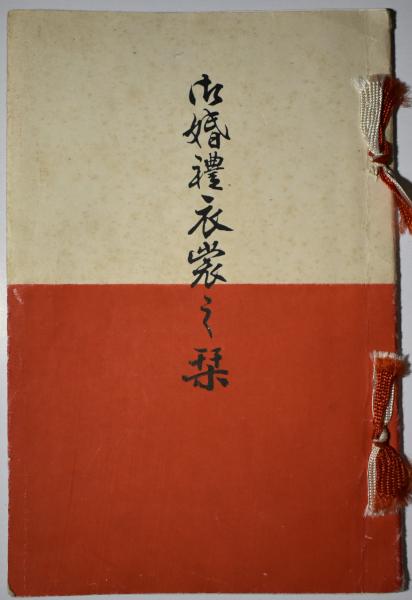 御婚禮衣裳之栞